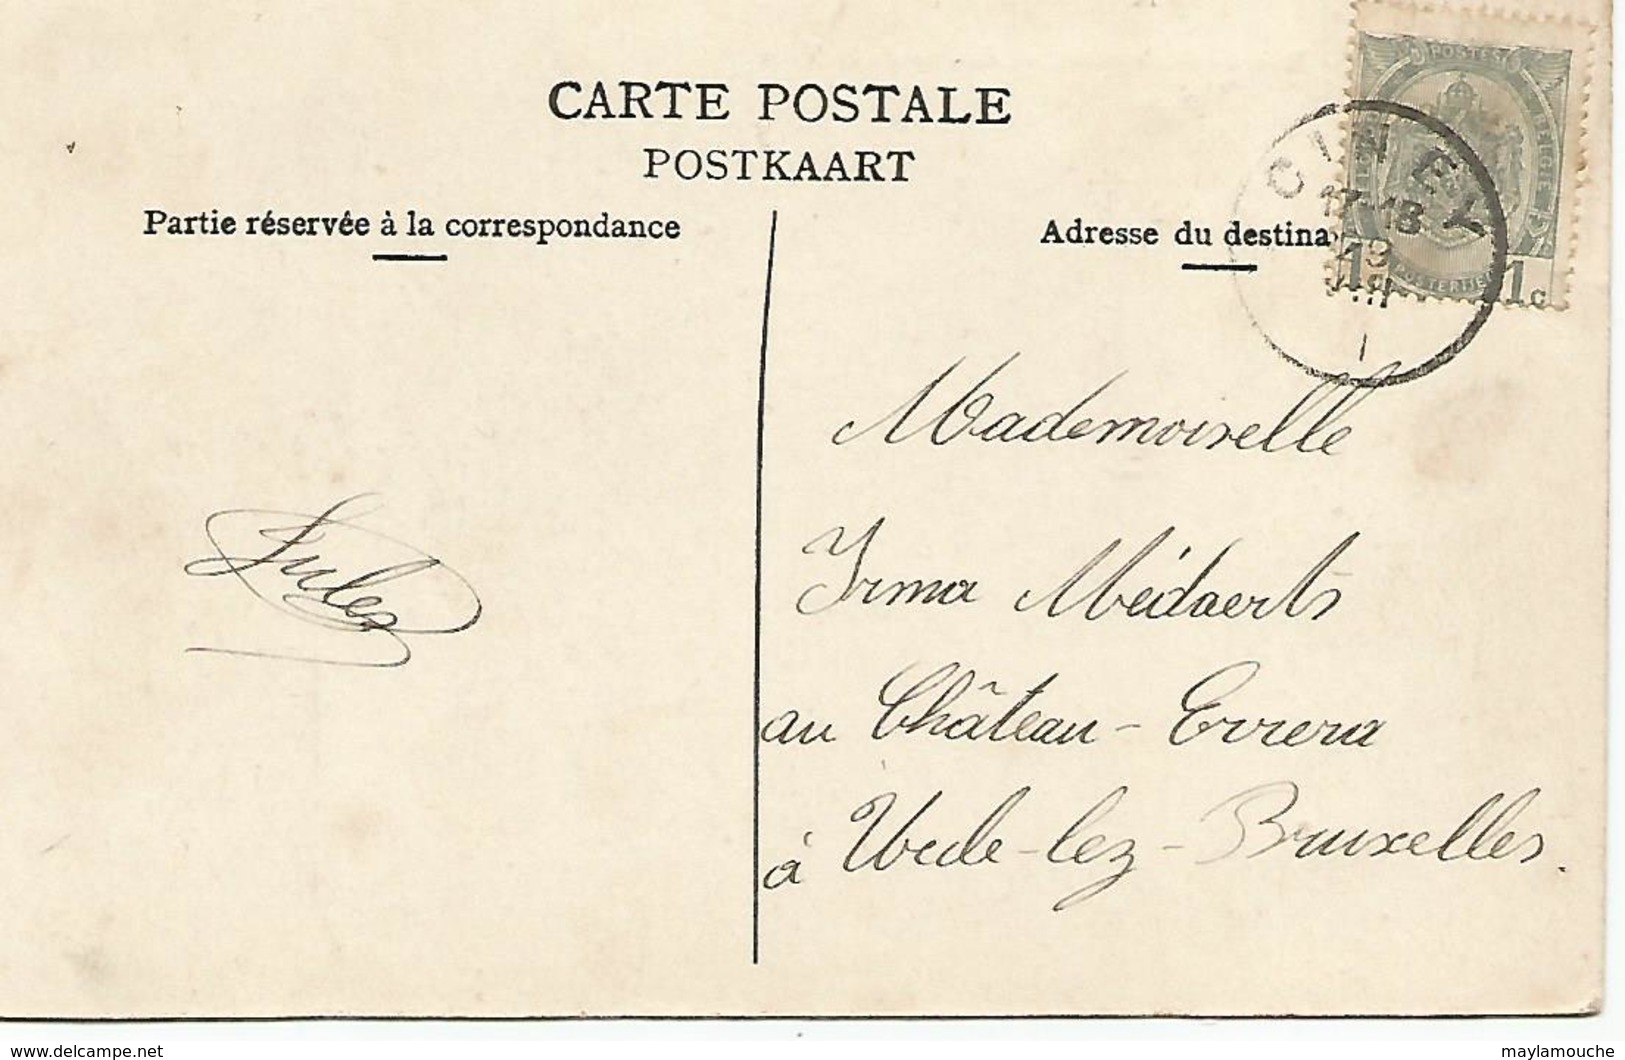 CARTE POSTALE
POSTKAART
Partie réservée à la correspondance
Adresse du destina
POSTES
BELGIE
POSTERIJEN
1 1c
CINEY
17-18
VIII
Jules
Mademoiselle
Irma Médaerts
au Château-Errera
à Uccle-lez-Bruxelles.
www.delcampe.net
maylamouche